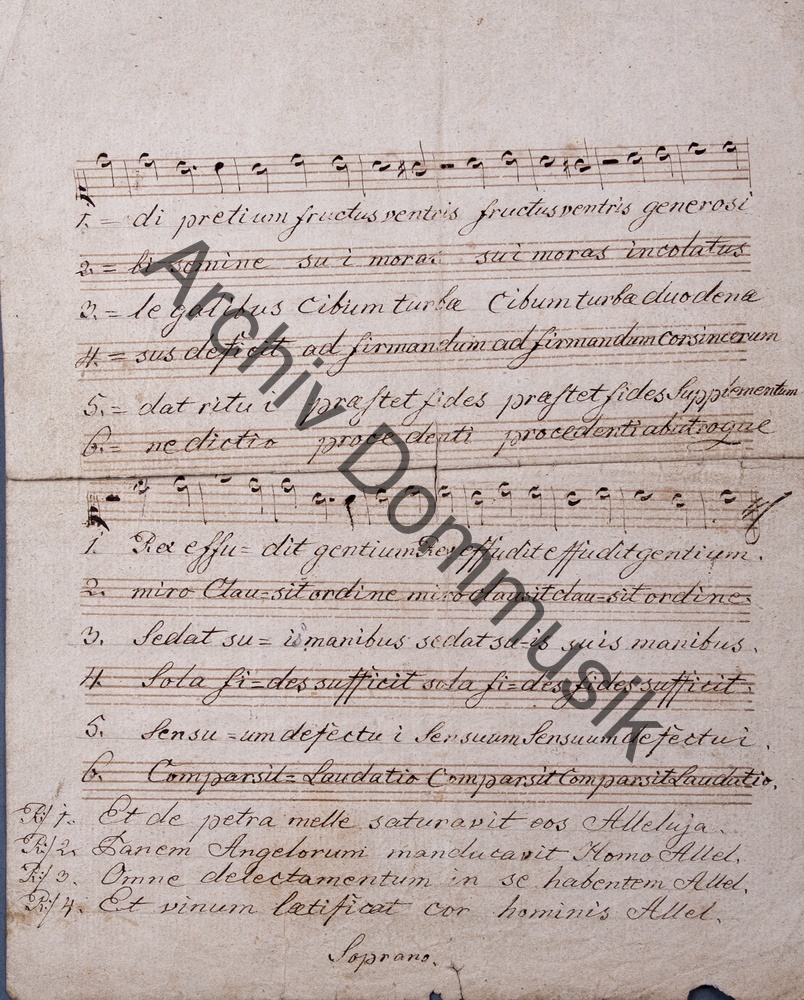 1. = di pretium fructus ventris fructus ventris generosi
2. = bi semine su i moras sui moras incolatus
3. = le galibus Cibum turbæ Cibum turbæ duodenæ
4. = sus deficit ad firmandum ad firmandum cor sincerum
5. = dat ritu i præstet fides præstet fides Supplementum
6. = ne dictio proce denti procedenti ab utroque
1. Rex effu= dit gentium Rex effudit effudit gentium.
2. miro Clau=sit ordine miro clausit clau=sit ordine.
3. Sedat su= is manibus sedat su=is suis manibus.
4. Sola fi=des sufficit sola fi=des fides sufficit.
5. Sensu=um defectu i Sensuum Sensuum defectui.
6. Comparsit= Laudatio Comparsit Comparsit Laudatio.
R/ 1. Et de petra melle saturavit eos Alleluja.
R/ 2. Panem Angelorum manducavit Homo Allel.
R/ 3. Omne delectamentum in se habentem Allel.
R/ 4. Et vinum lætificat cor hominis Allel.
Soprano.
Archiv Dommusik